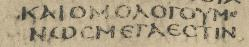 ΚΑΙΟΜΟΛΟΓΟΥΜΕ
ΝΩϹΜΕΓΑΕϹΤΙΝ